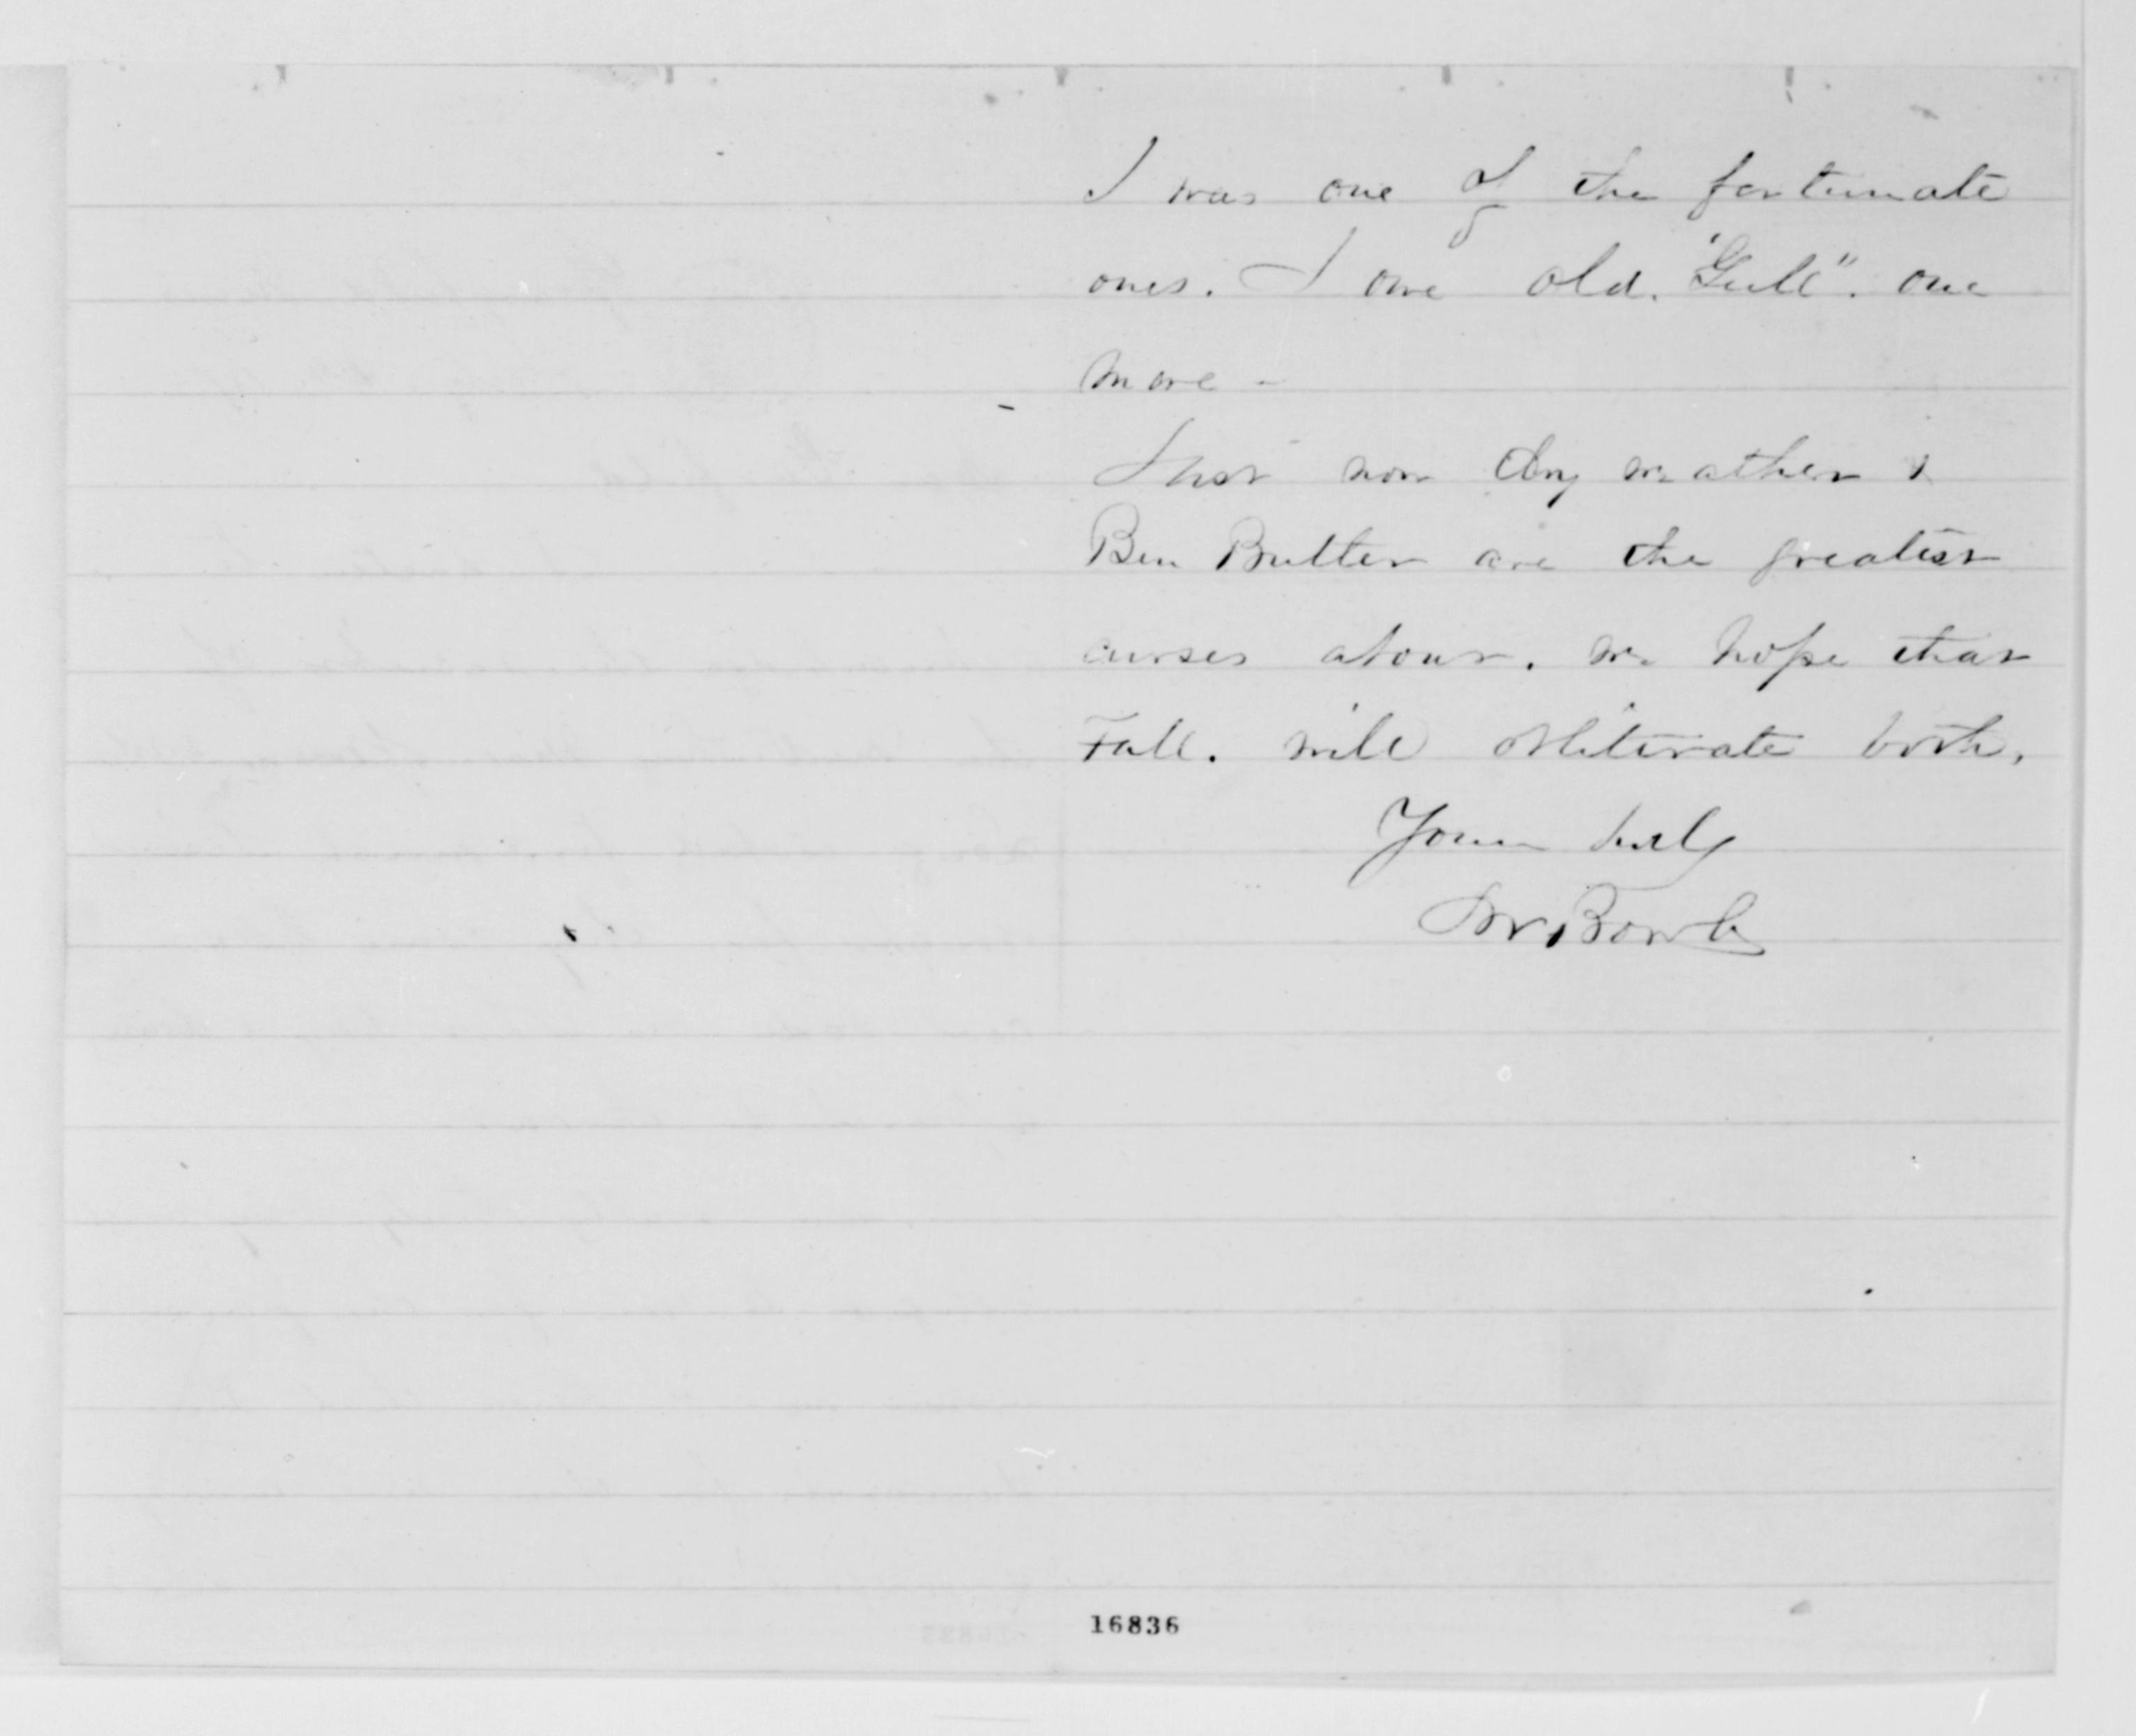 I was one of the fortunate
ones. I owe old. "Gull". one
more -
Just now dry weather &
Ben Butler are the greatest
curses about. we hope that
Fall. will obliterate both.
Yours truly
16836